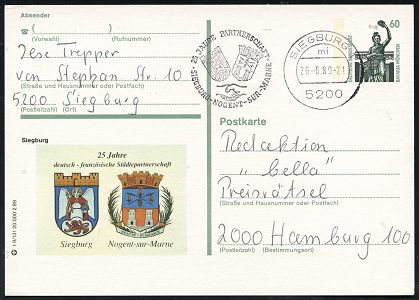 Absender
☎ (                    )
(Vorwahl) (Rufnummer)
Trepper
von Stephan Str. 10
(Straße und Hausnummer oder Postfach)
5200 Siegburg
(Postleitzahl) (Ort)
25 JAHRE PARTNERSCHAFT
SIEGBURG-NOGENT-SUR-MARNE
SIEGBURG
mi
5200
60
Siegburg
25 Jahre
deutsch - französische Städtepartnerschaft
Siegburg Nogent-sur-Marne
Postkarte
Redaktion
"bella"
Preisrätsel
(Straße und Hausnummer oder Postfach)
2000 Hamburg 100
(Postleitzahl) (Bestimmungsort)